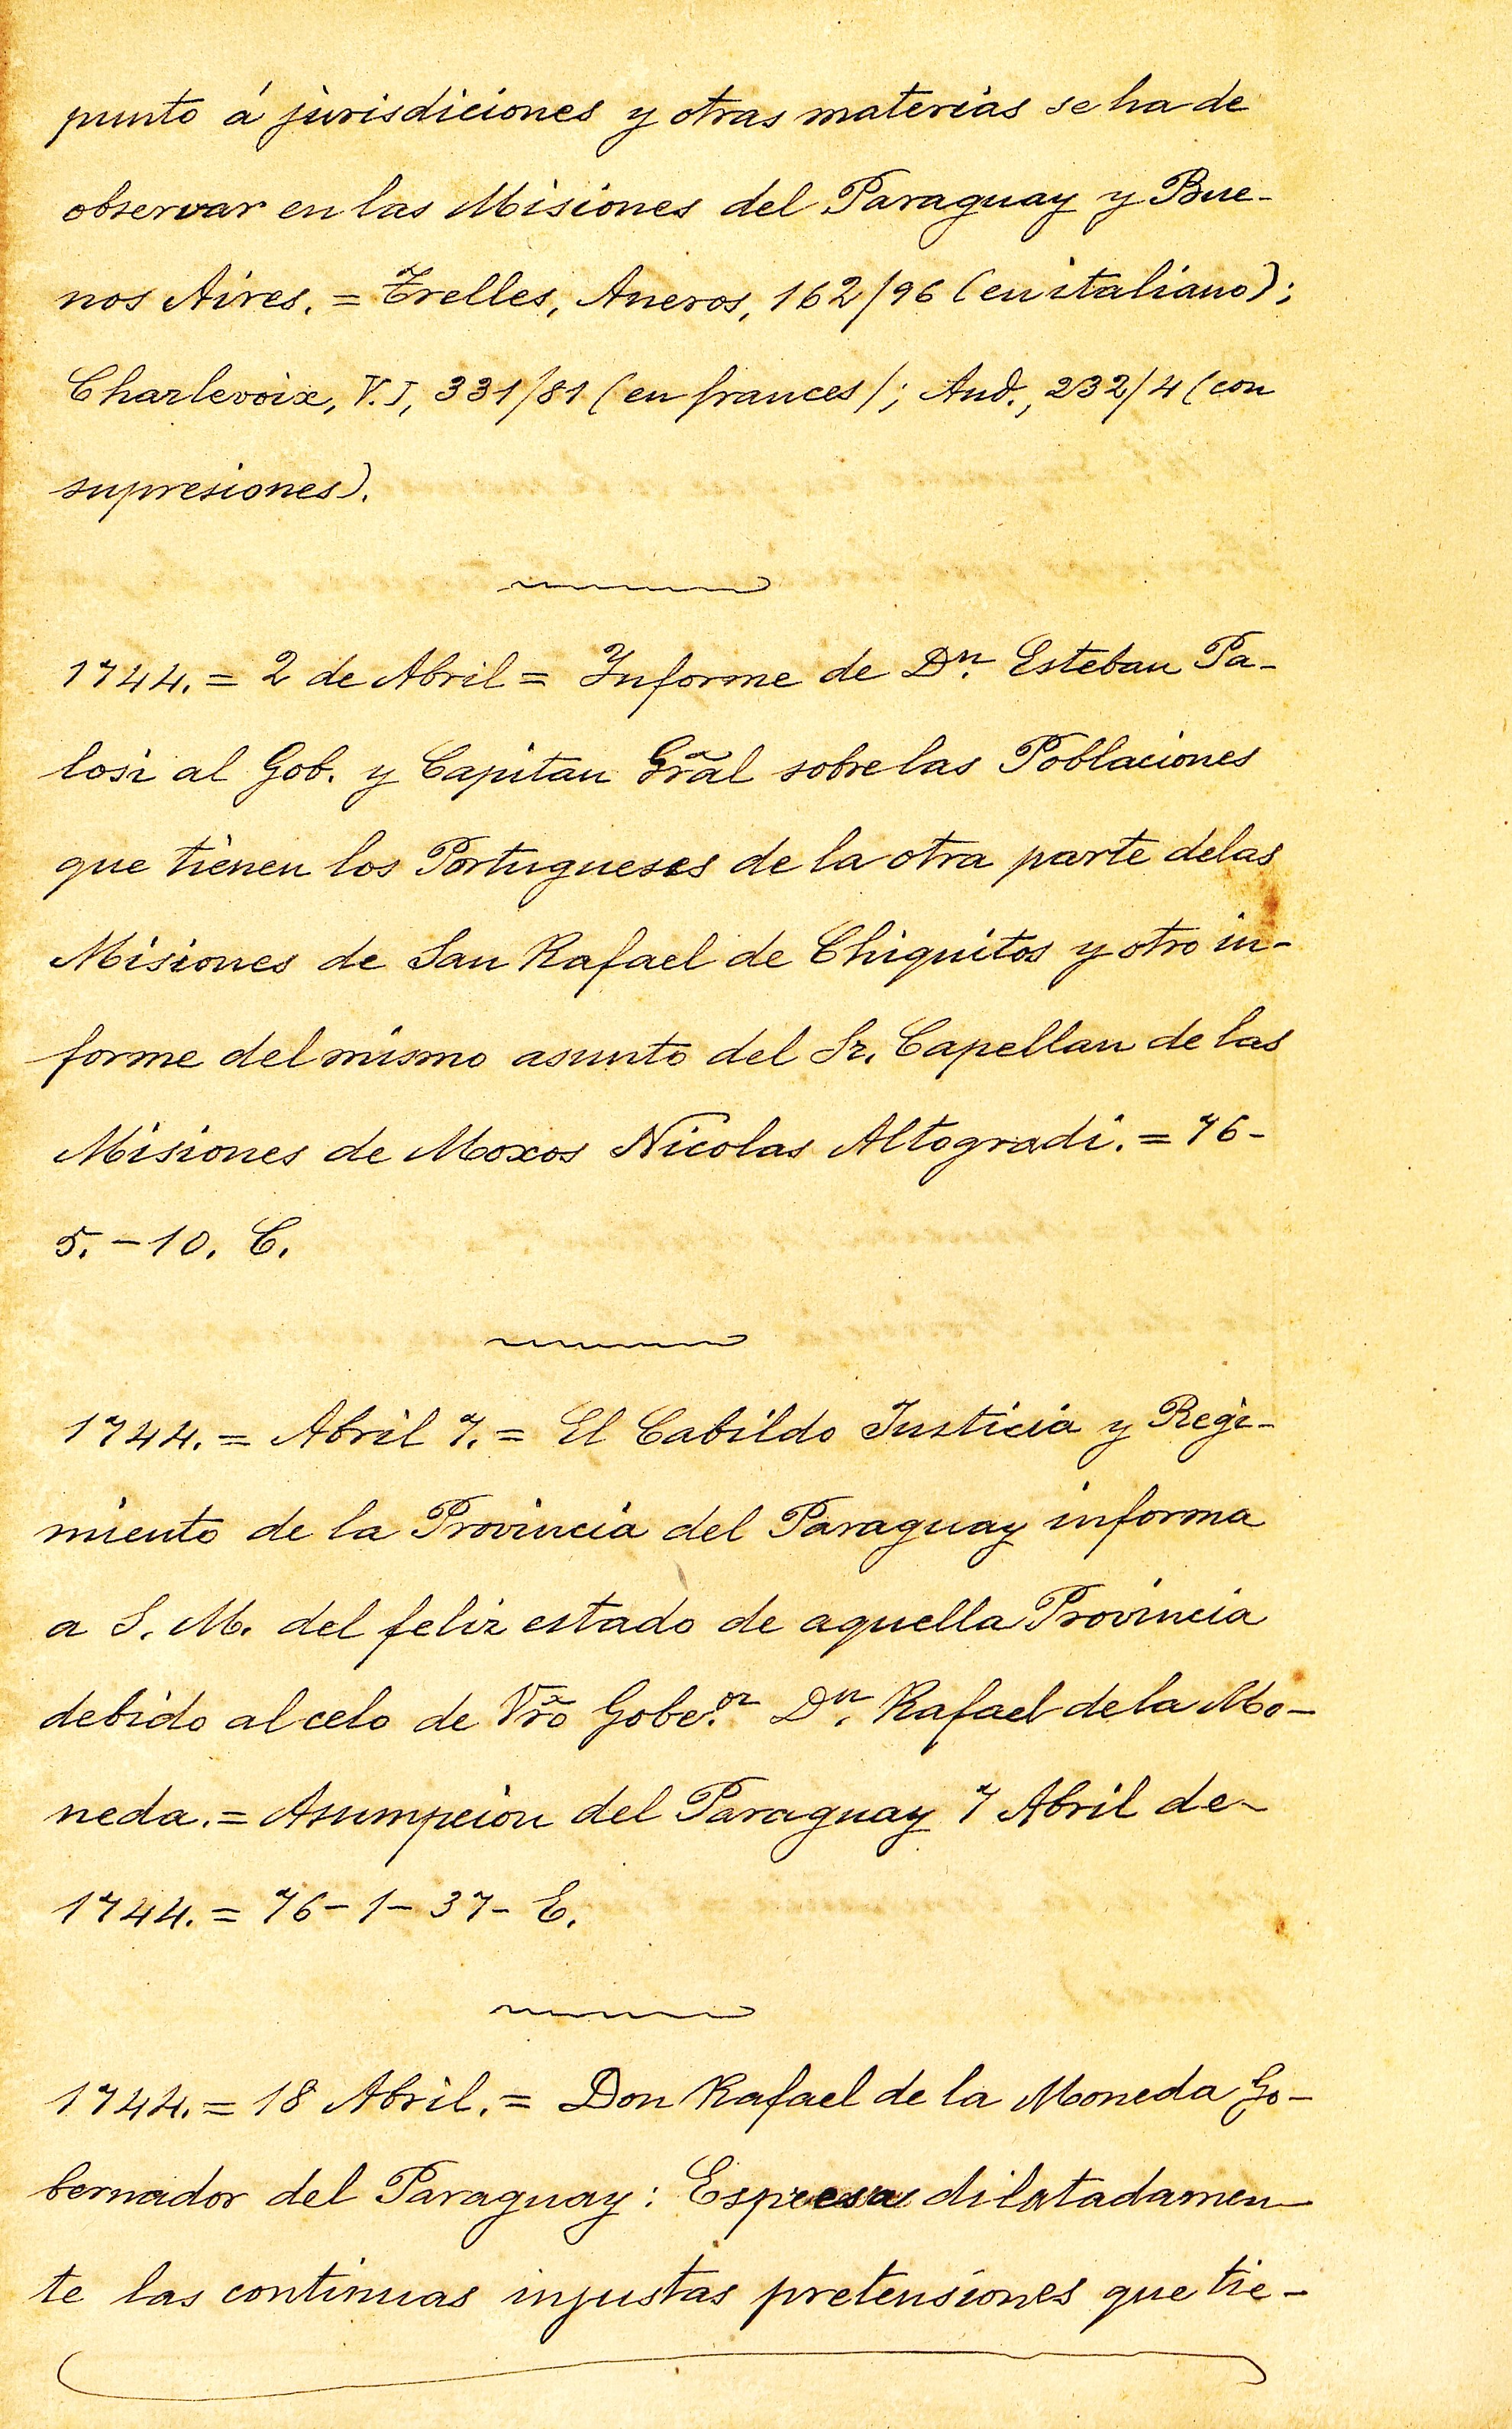 punto á jurisdiciones y otras materias se ha de
observar en las Misiones del Paraguay y Bue-
nos Aires. = Trelles, Aneros, 162/96 (en italiano);
Charlevoix, V.I, 331/81 (en frances); And., 232/4 (con
supresiones).
1744. = 2 de Abril = Informe de Dn. Esteban Pa-
losi al Gob. y Capitan Gral sobre las Poblaciones
que tienen los Portugueses de la otra parte delas
Misiones de San Rafael de Chiquitos y otro in-
forme del mismo asunto del Sr. Capellan de las
Misiones de Moxos Nicolas Altogradi. = 76-
5. - 10. C.
1744. = Abril 7. = El Cabildo Justicia y Regi-
miento de la Provincia del Paraguay informa
a S. M. del feliz estado de aquella Provincia
debido al celo de Vro Gobe.or Dn. Rafael de la Mo-
neda. = Assumpcion del Paraguay 7 Abril de-
1744. = 76-1-37- E.
1744. = 18 Abril. = Don Rafael de la Moneda Go-
bernador del Paraguay: Espresa dilatadamen-
te las continuas injustas pretensiones que tie-